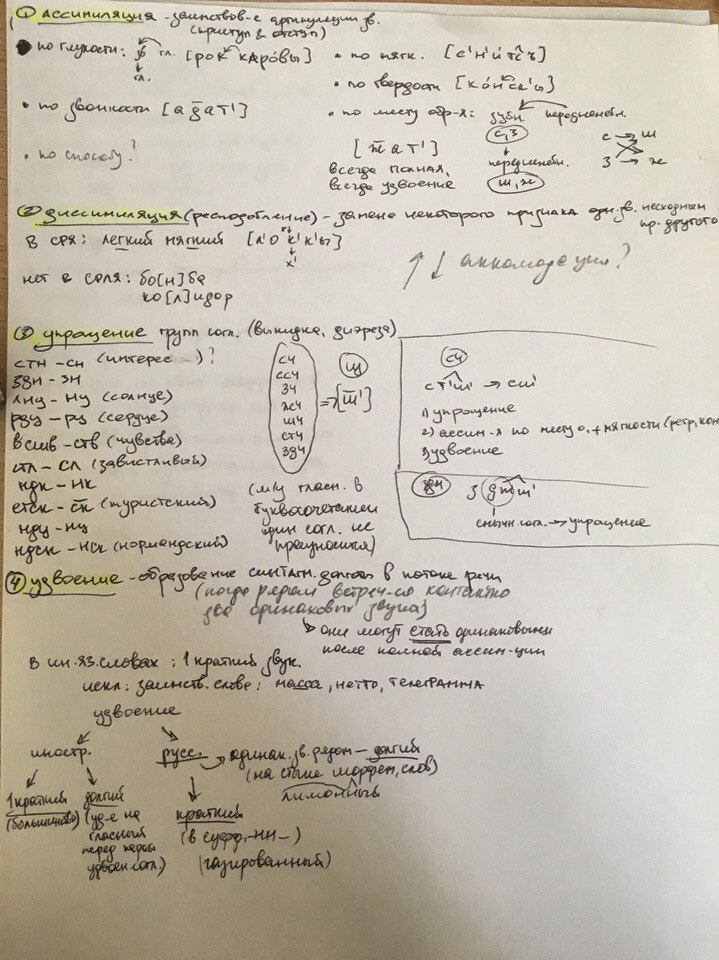 ① Ассимиляция - заимствов-е артикуляции зв.
(приступ & отступ)
• по глухости: гл. [рок карóвы]
гл.
• по звонкости [а д̅ ат']
• по способу?
• по мягк. [с'н'и
• по твердости [кóнск'и
• по месту обр-я: зубн. передненёбн.
с, з
передненёбн.
ш, ж
с → ш
з → ж
[ш̅ ат']
всегда полная,
всегда удвоение
② Диссимиляция (расподобление) - замена некоторого признака одн. зв. несходным
пр. другого
в СРЯ: легкий мягкий [л'о к'к'ы]
х'
нет в СРЛЯ: бо[н]ба
ко[л]идор
↑↓ аккомодация?
③ упрощение групп согл. (выкидка, диэреза)
стн - сн (интерес -)?
здн - зн
лнц - нц (солнце)
рдц - рц (сердце)
вств - ств (чувства)
стл - сл (завистливый)
ндк - нк
стск - с̅к (туристский)
ндц - нц
ндск - нск (нормандский)
сч
ссч
зч
жч
шч
стч
здч
⇒ щ [ш̅']
(м/у гласн. в
буквосочетании
один согл. не
произносится)
сч
ст'ш' → сш'
1) упрощение
2) ассим-я по месту о. + мягкости (регр, кон
3) удвоение
смычн согл. → упрощение
④ удвоение - образование синтагм. долготы в потоке речи
(когда рядом встреч-ся контактно
два одинаковых звука)
↳ они могут стать одинаковыми
после полной ассим-ции
В ин. яз. словах: 1 краткий звук
искл: заимств. слова: масса, нетто, телеграмма
удвоение
иностр.
русс. → одинак. зв. рядом - долгий
(на стыке морфем, слов)
лимонный
1 краткий
(большинство)
долгий
(уд-е на
гласный
перед
удвоен согл.)
краткий
(в суфф. -нн-)
(газированный)